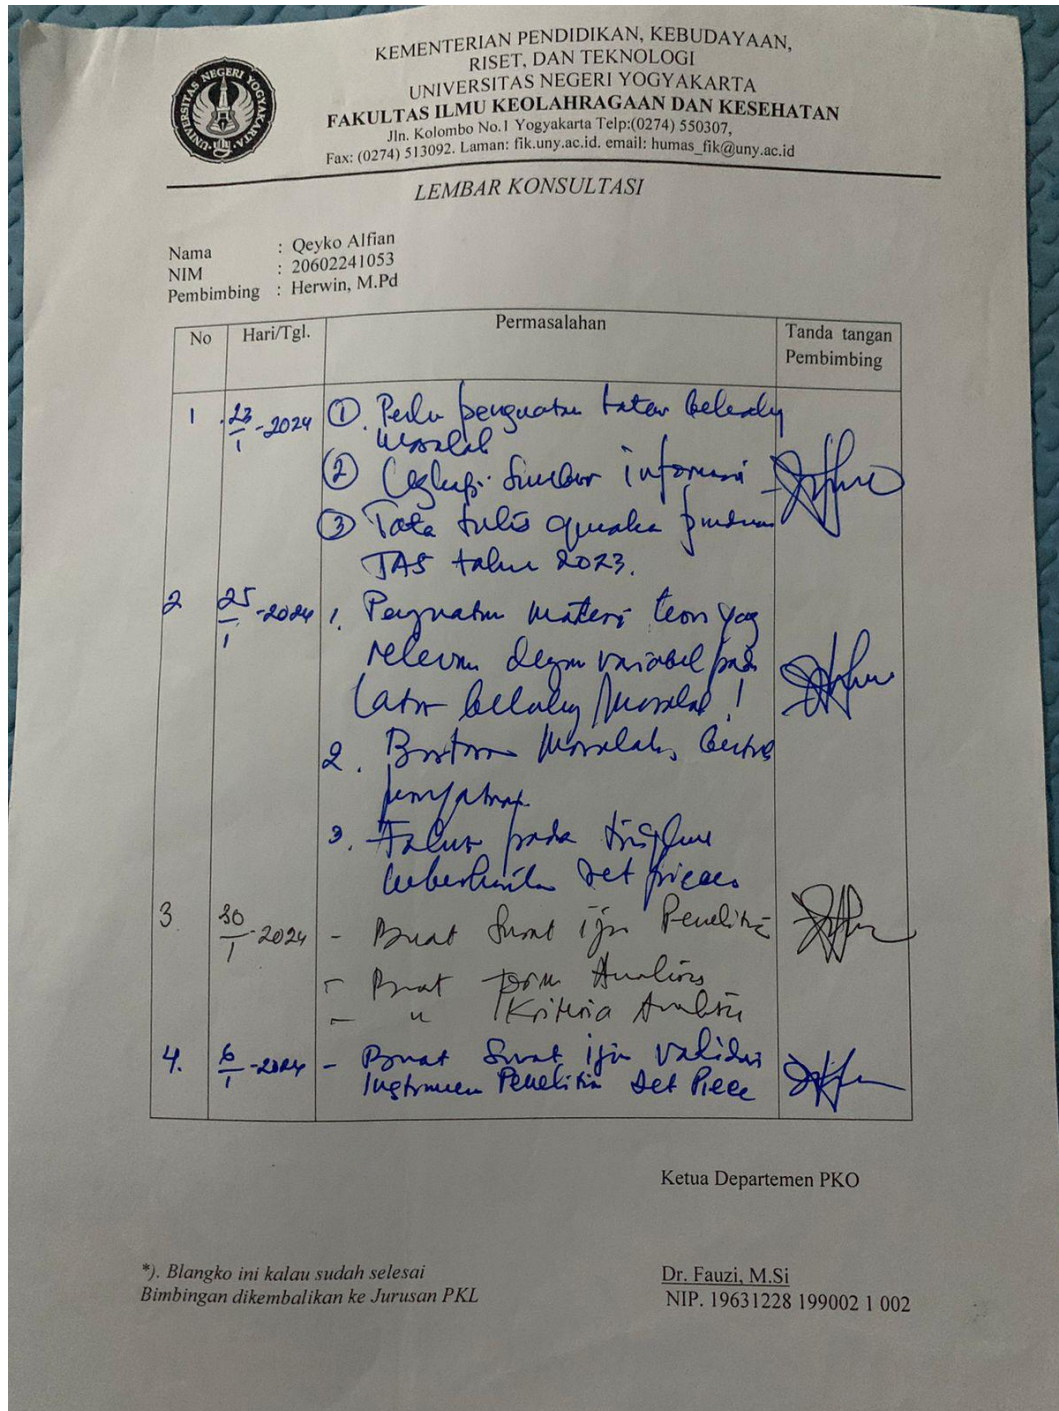 KEMENTERIAN PENDIDIKAN, KEBUDAYAAN,
RISET, DAN TEKNOLOGI
UNIVERSITAS NEGERI YOGYAKARTA
FAKULTAS ILMU KEOLAHRAGAAN DAN KESEHATAN
Jln. Kolombo No.1 Yogyakarta Telp:(0274) 550307,
Fax: (0274) 513092. Laman: fik.uny.ac.id. email: humas_fik@uny.ac.id
UNIVERSITAS NEGERI YOGYAKARTA
LEMBAR KONSULTASI
Nama : Qeyko Alfian
NIM : 20602241053
Pembimbing : Herwin, M.Pd
No Hari/Tgl. Permasalahan Tanda tangan
Pembimbing
1 23/1-2024 ① Perlu penguatan latar belakang
masalah
② Lengkapi sumber informasi
③ Tata tulis gunakan panduan
TAS tahun 2023.
2 25/1-2024 1. Penguatan materi teori yag
relevan dengan variabel pada
latar belakang masalah!
2. Batasan masalah,
3. Fokus pada tingkat
keberhasilan set pieces
3. 30/1-2024 - Buat Surat ijin Penelitian
- Buat form Analisis
- " Kriteria Analisis
4. 6/1-2024 - Buat Surat ijin Validasi
Instrumen Penelitian Set Piece
Ketua Departemen PKO
*). Blangko ini kalau sudah selesai
Bimbingan dikembalikan ke Jurusan PKL
Dr. Fauzi, M.Si
NIP. 19631228 199002 1 002